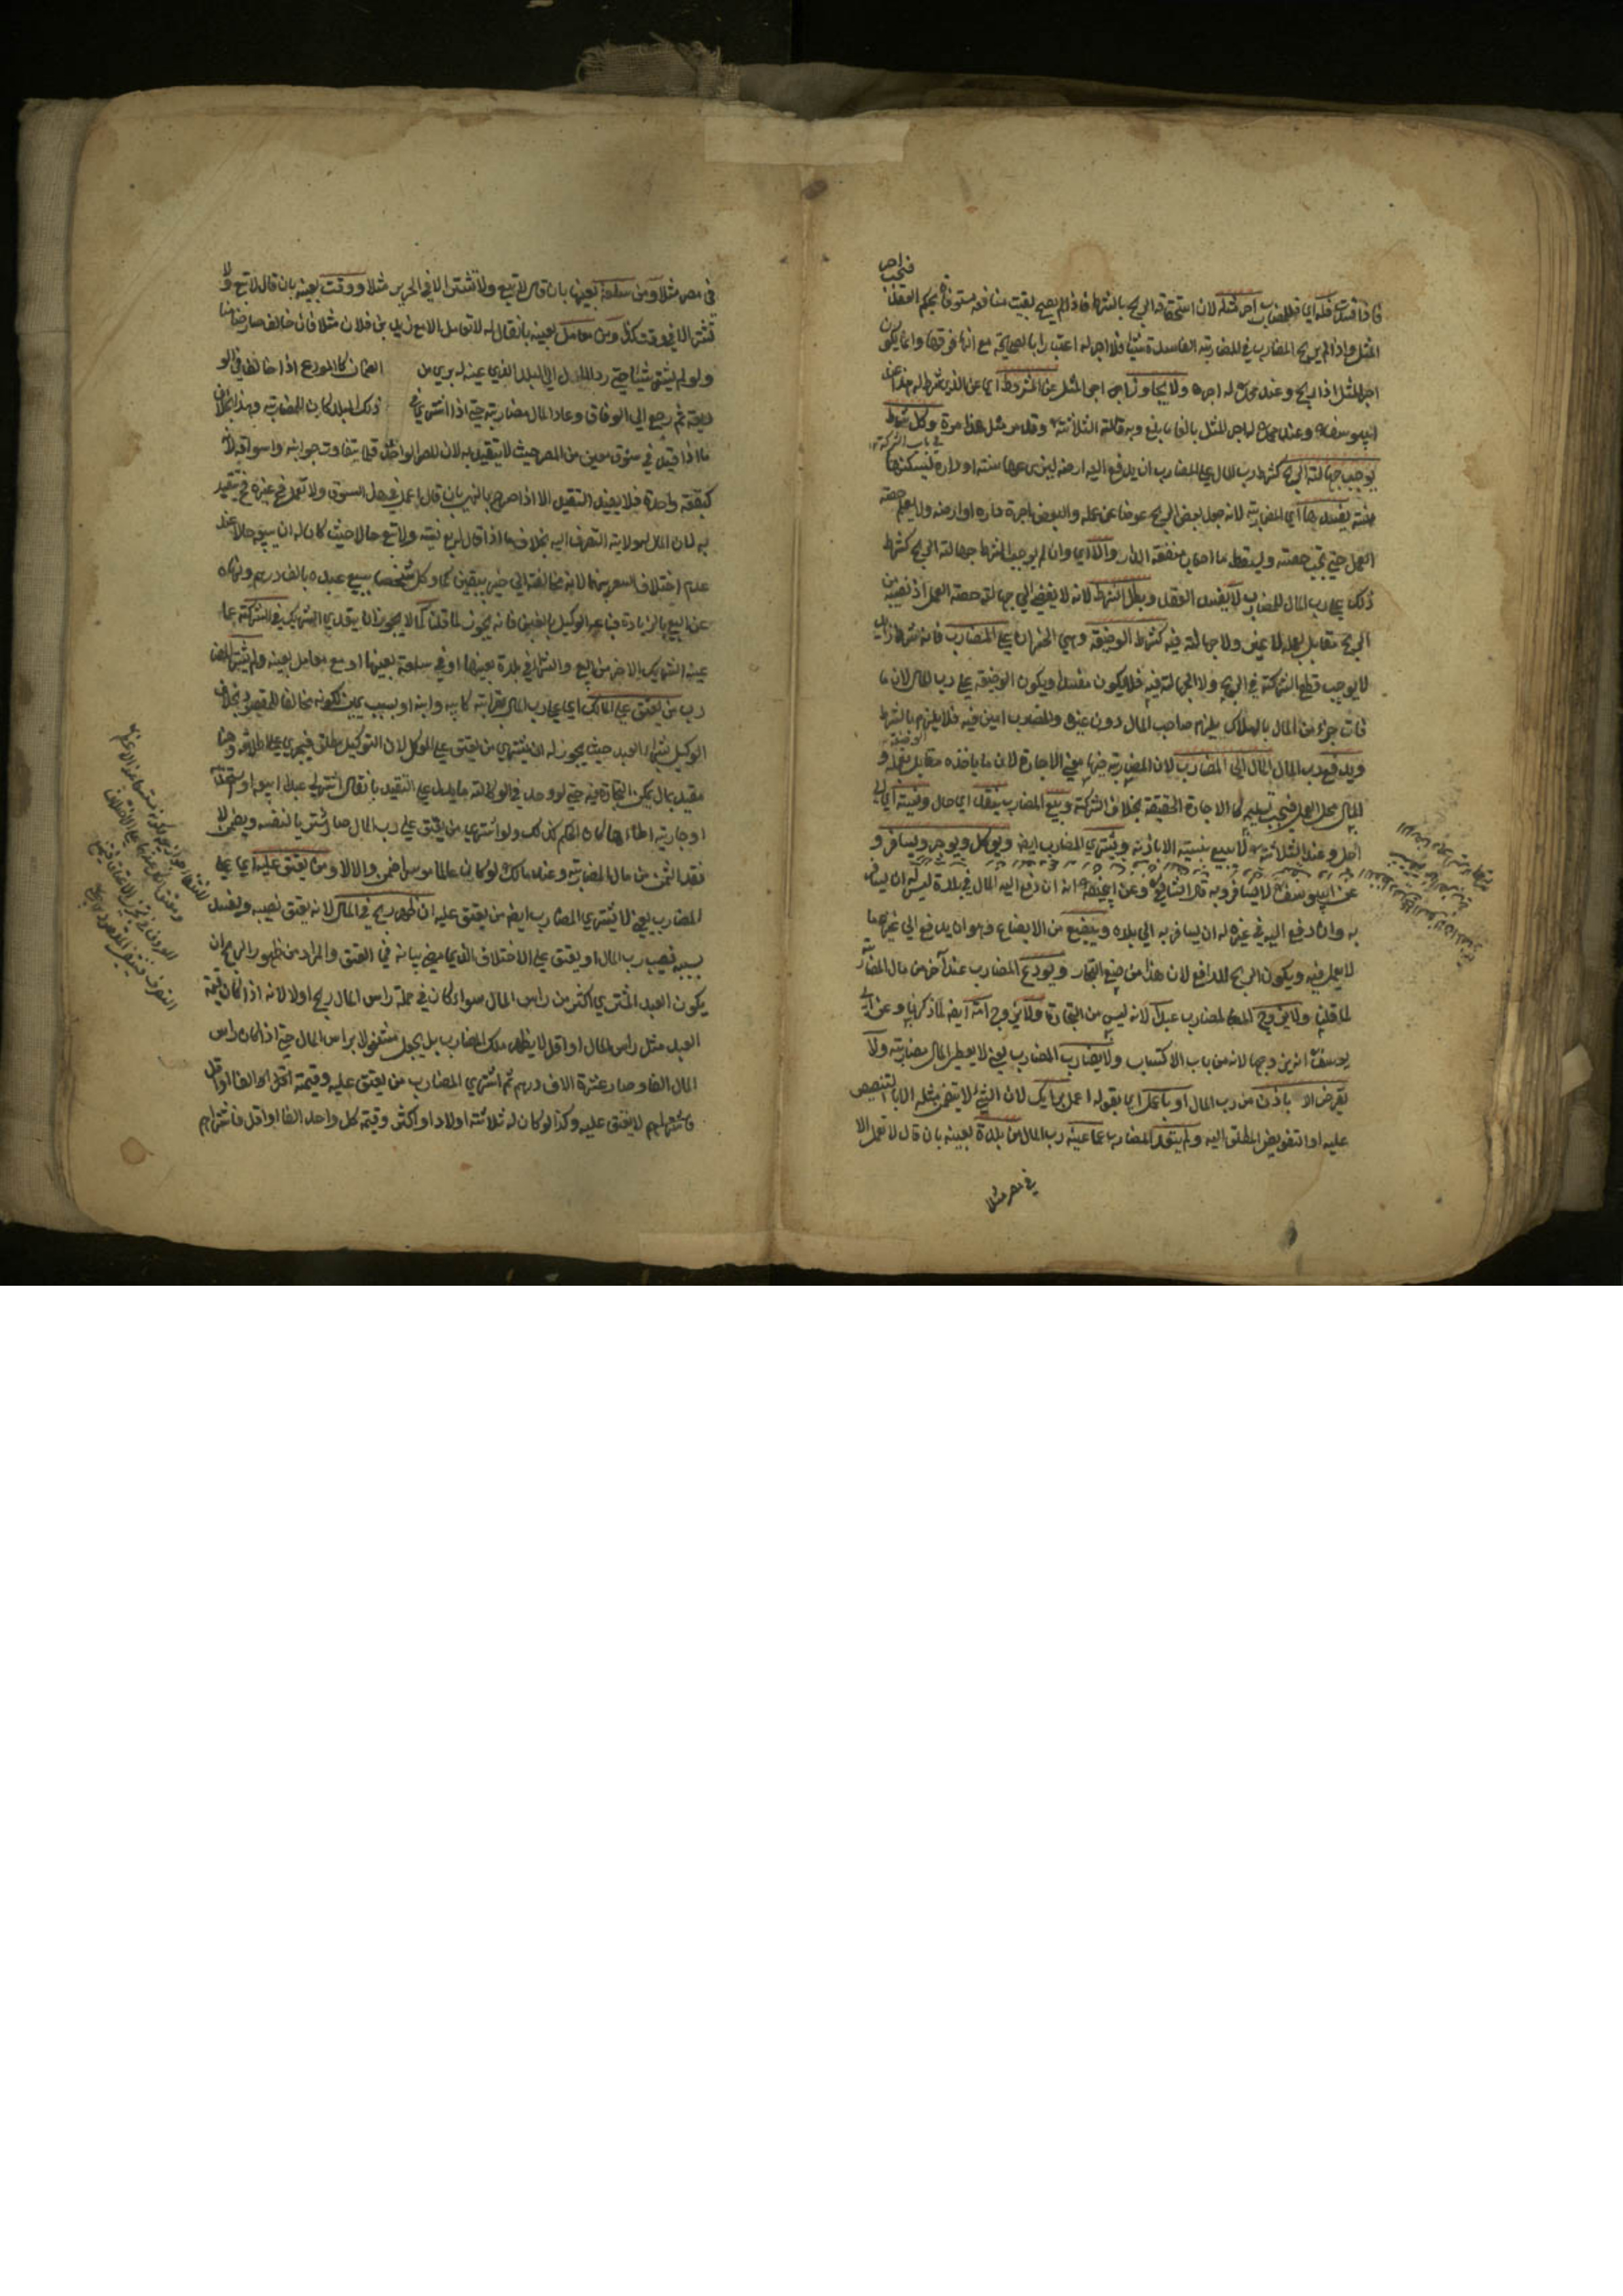 فاذا فسدت فله اي للمضارب اجر مثله لان استحقاقه الربح بالشرط فاذا لم يصح بقيت منافعه مستوفاة بحكم العقد فتجب اجر
المثل واذا لم يربح المضارب في المضاربة الفاسدة شيئا فلا اجر له اعتبارا بالصحيحة مع انها فوقها وانما يكون
اجر المثل اذا ربح وعند محمد له اجره ولا يجاوز اجر المثل عن المشروط اي عن الذي شرط له هذا عند
ابي يوسف وعند محمد له اجر المثل بالغا ما بلغ وبه قالت الثلاثة وقد مر مثل هذا مرة في باب الشركة وكل شرط
يوجب جهالة الربح كشرط رب المال على المضارب ان يدفع اليه ارضه ليزرعها سنة او داره ليسكنها
سنة يفسدها اي المضاربة لانه جعل بعض الربح عوضا عن عمله والبعض اجرة داره او ارضه ولا يعلم حصة
العمل حتى تجب حصته ويسقط ما اصاب منفعة الدار والا اي وان لم يوجب الشرط جهالة الربح كشرط
ذلك على رب المال للمضارب لا يفسد العقد وبطل الشرط لانه لا يفضي الى جهالة حصة العمل اذ نصيبه من
الربح مقابل بعمله لا غير ولا جهالة فيه كشرط الوضيعة وهي الخسران على المضارب فانه شرط زائد
لا يوجب قطع الشركة في الربح ولا الجهالة فيه فلا يكون مفسدا ويكون الوضيعة على رب المال لان ما
فات جزء من المال بالهلاك يلزم صاحب المال دون غيره والمضارب امين فيه فلا يلزم بالشرط الوضيعة
ويدفع رب المال المال الى المضارب لان المضاربة فيها معنى الاجارة لان ما ياخذه مقابل بعمله و
المال محل العمل فيجب تسليمه كما الاجارة الحقيقة بخلاف الشركة ويبيع المضارب بنقد اي حال ونسية اي الى
اجل وعند الثلاثة لا يبيع بنسية الا باذنه ويشتري المضارب ايضا ويوكل ويوجر ويسافر و
عن ابي يوسف لا يسافر وبه قال الشافعي وعن ابي حنيفة انه ان دفع اليه المال في بلدة ليس له ان يسافر
به وان دفع اليه في غيره له ان يسافر به الى بلده ويبضع من الابضاع وهو ان يدفع الى غيره ما
لا يعمل فيه ويكون الربح للدافع لان هذا من صنيع التجار ويودع المضارب عند آخر من مال المضاربة
لما قلنا ولا يزوج المضارب عبدا لانه ليس من التجارة ولا يزوج امة ايضا لما ذكرنا وعن ابي
يوسف انه يزوجها لانه من باب الاكتساب ولا يضارب المضارب يعني لا يعطي المال مضاربة ولا
يقرض الا باذن من رب المال او باعمل اي بقوله اعمل برايك لان الشيء لا يتضمن مثله الا بالتنصيص
عليه او التفويض المطلق اليه ولم يتعد المضارب عما عينه رب المال من بلدة بعينه بان قال لا تعمل الا
في مصر مثلا
في مصر مثلا ومن سلعة بعينها بان قال لا تبيع ولا تشتر الا في الحرير مثلا ووقت بعينه بان قال لا تبع ولا
تشتر الا في وقت كذا ومن معامل بعينه بان قال له لا تعامل الا مع زيد بن فلان مثلا فان خالف صار ضامنا
ولو لم يشتر شيئا حتى رد المال الى البلد الذي عينه له بري من الضمان كالمودع اذا خالف في الو
ديعة ثم رجع الى الوفاق وعاد المال مضاربة حتى اذا اشترى في ذلك البلد كان للمضاربة وهذا بخلاف
ما اذا قيد في سوق معين من المصر حيث لا يتقيد به لان المصر الواحد قلما يتفاوت جوانبه واسواقه لانه
كبقعة واحدة فلا يفيد التقييد الا اذا صرح بالنهي بان قال اعمل في هذا السوق ولا تعمل في غيره فح يتقيد
به لان المال له ولاية التصرف اليه بخلاف ما اذا قال له بع نسية ولا تبع حالا حيث كان له ان يبيع حالا عند
عدم اختلاف السعر بينهما لانه مخالفة الى خير بيقين كما وكل شخصا ببيع عبده بالف درهم ونهاه
عن البيع بالزيادة فباع الوكيل بالفين فانه يجوز لما قلنا كما لا يجوز ان يتعدى الشريك في الشركة عما
عينه الشريك الاخر من البيع والشراء في بلدة بعينها او في سلعة بعينها او مع معامل بعينه ولم يشتر المضا
رب من يعتق على المالك اي على رب المال بقرابته كابيه وابنه او بسبب يمين لكونه مخالفا للمقصود بخلاف
الوكيل بشراء العبد حيث يجوز له ان يشتري من يعتق على الموكل لان التوكيل مطلق فيجري على اطلاقه وهنا
مقيد بمال يمكن التجارة فيه حتى لو وجد في الوكالة ما يدل على التقييد بان قال اشتر لي عبدا ابيعه او استخدمه
او جارية اطاءها كان الحكم كذلك ولو اشترى من يعتق على رب المال صار مشتريا لنفسه ويضمن لا
نقد الثمن من مال المضاربة وعند مالك لو كان عالما موسرا ضمن والا لا ومن يعتق عليه اي على
المضارب يعني لا يشتري المضارب ايضا من يعتق عليه ان ظهر ربح في المال لانه يعتق نصيبه ويفسد
بسببه نصيب رب المال او يعتق على الاختلاف الذي مضى بيانه في العتق والمراد من ظهور الربح ان
يكون العبد المشترى اكثر من راس المال سواء كان في جملة راس المال ربح اولا لانه اذا كان قيمة
العبد مثل راس المال او اقل لا يظهر ملك المضارب بل يجعل مشغولا براس المال حتى اذا كان راس
المال الفا وصار عشرة الاف درهم ثم اشترى المضارب من يعتق عليه وقيمته الف او اقل
لا يعتق عليه وكذا لو كان له ثلاثة اولاد او اكثر وقيمة كل واحد الفا او اقل فاشتراهم